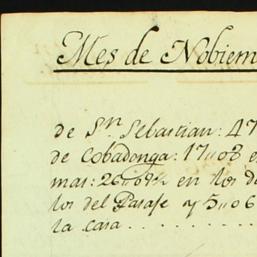 Mes de Nobiem
de Sn. Sebastian: 47
de Cobadonga: 17,,08 e
mas: 26,,6½ en los de
los del Pasage y 5,,06
la casa . . . . . . . .